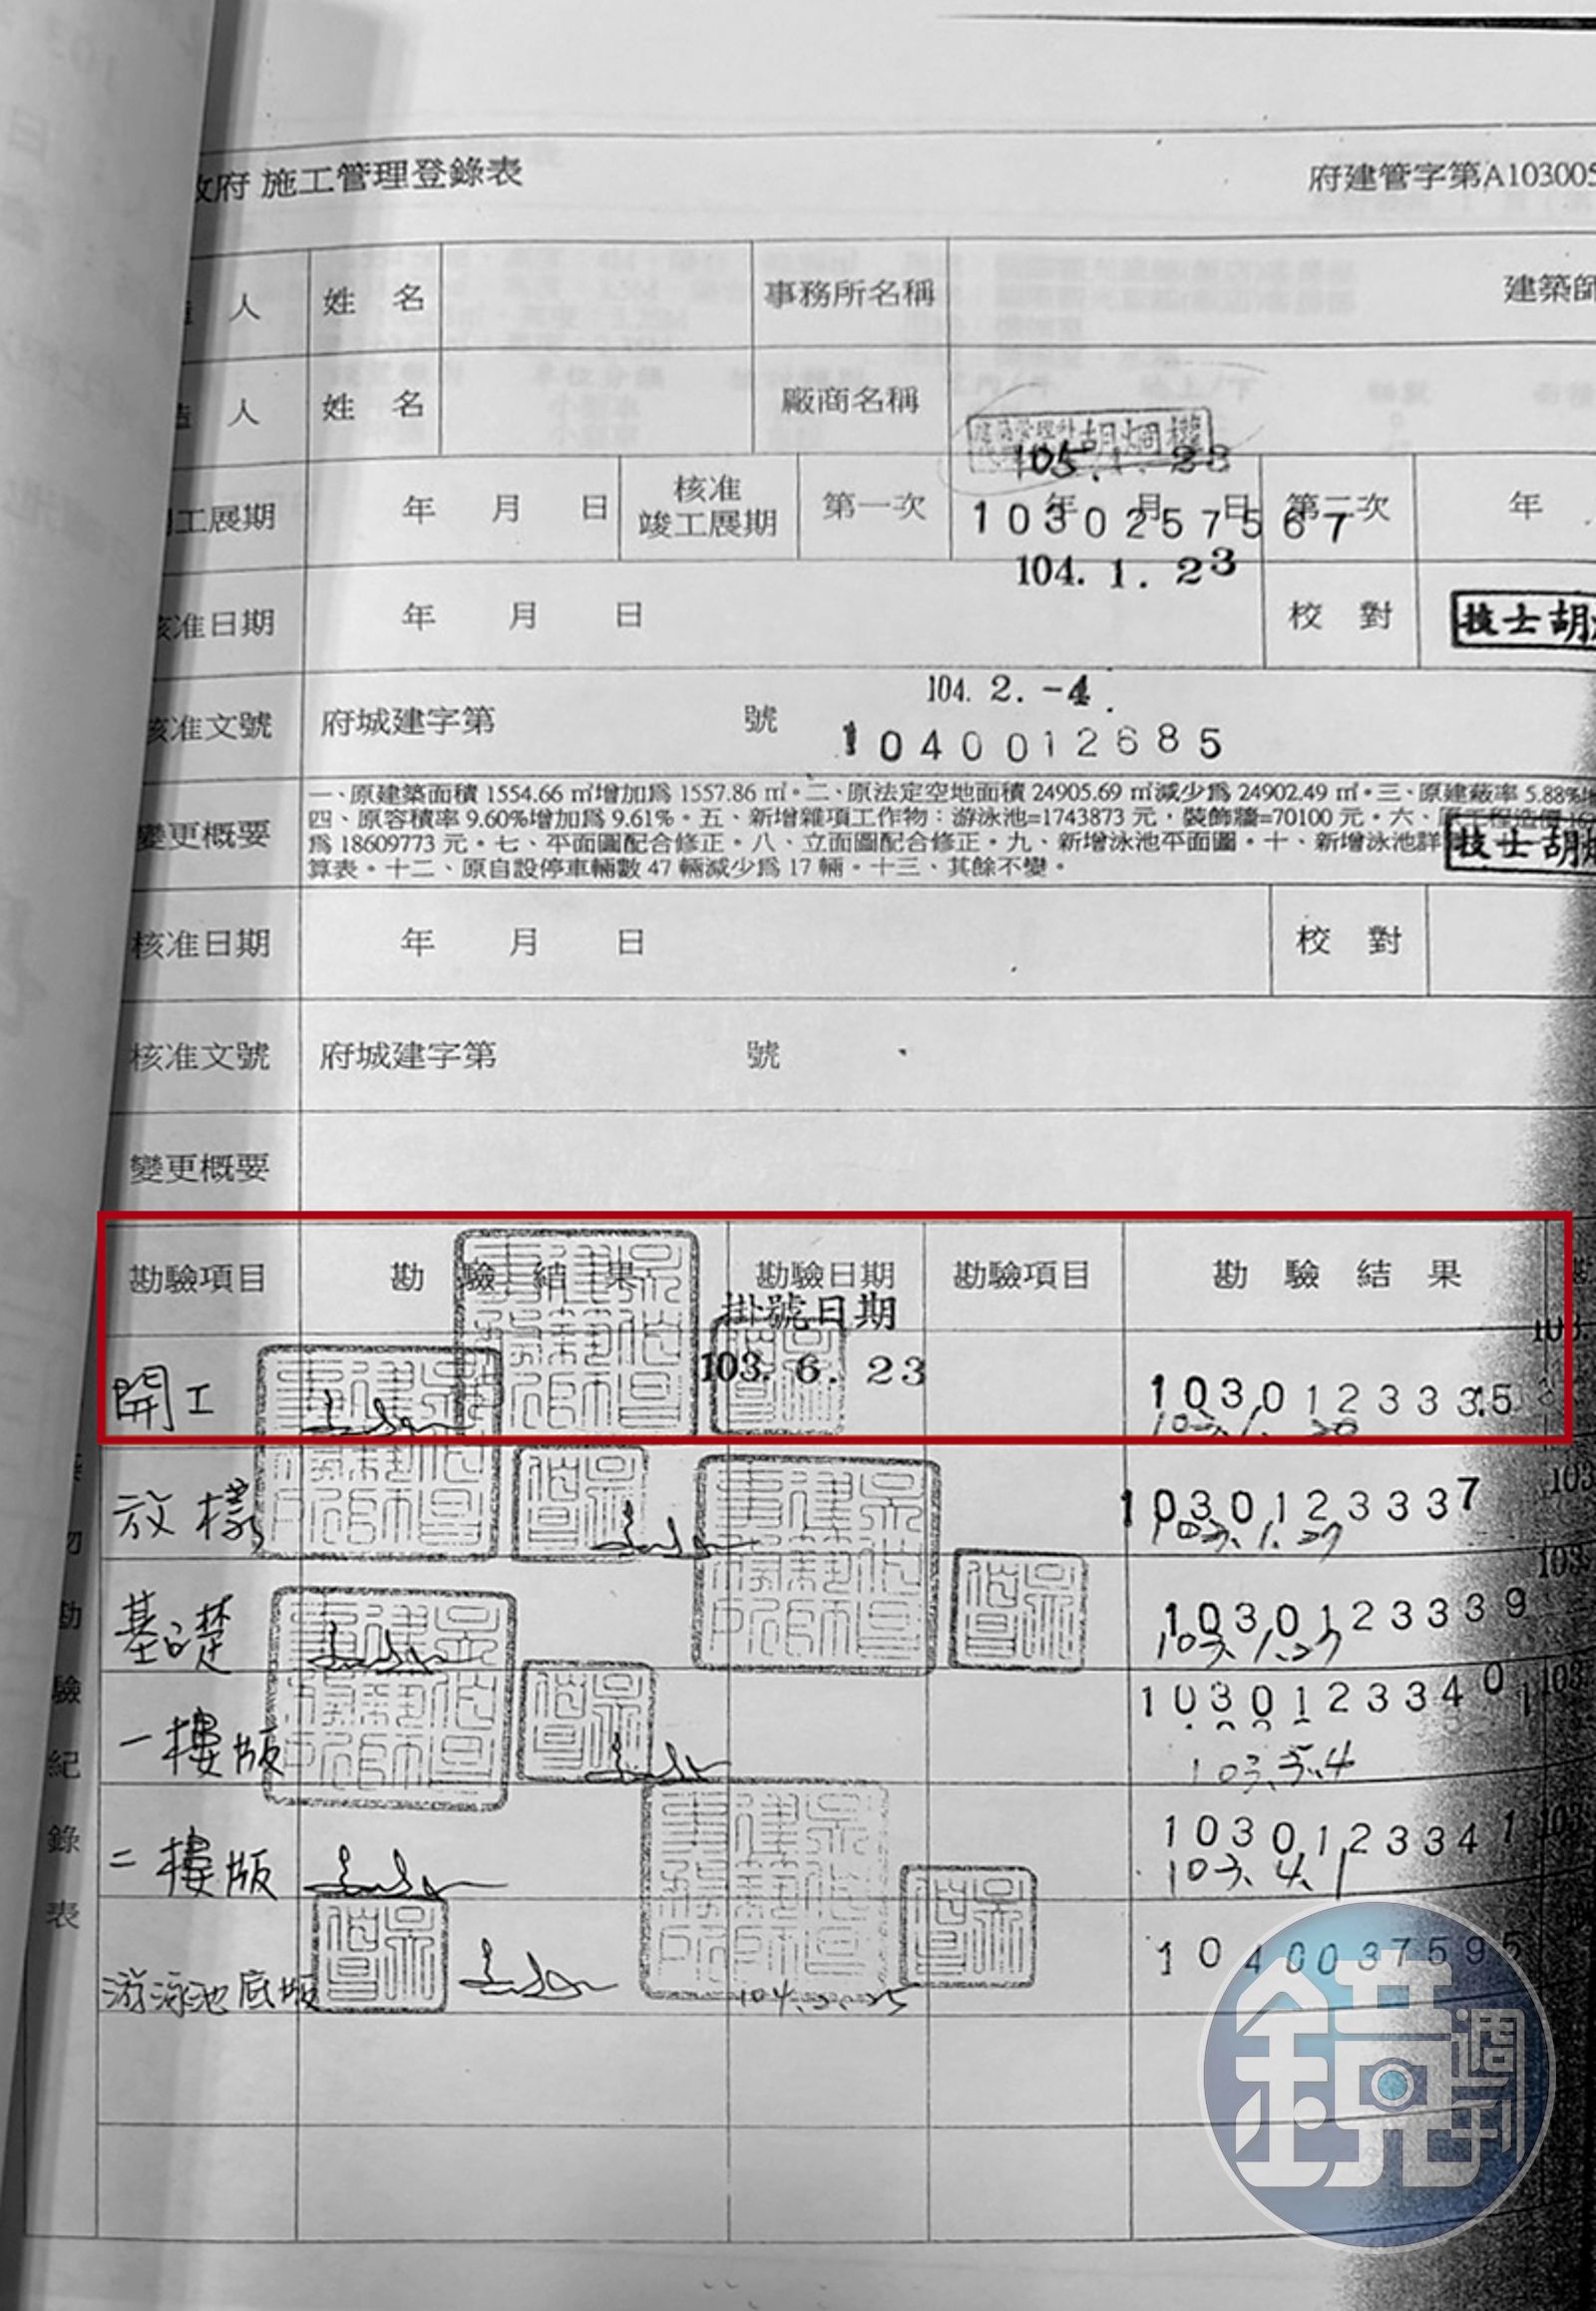 政府 施工管理登錄表 府建管字第A103005
人 姓 名 事務所名稱 建築師
人 姓 名 廠商名稱
105. 1. 23
工展期 年 月 日 核准竣工展期 第一次 年 月 日 第二次 年
1030257567
104. 1. 23
核准日期 年 月 日 校 對 技士胡
104. 2. -4.
核准文號 府城建字第 號 1040012685
變更概要
一、原建築面積 1554.66 ㎡增加爲 1557.86 ㎡。二、原法定空地面積 24905.69 ㎡減少爲 24902.49 ㎡。三、原建蔽率 5.88%
四、原容積率 9.60%增加爲 9.61%。五、新增雜項工作物：游泳池=1743873 元，裝飾牆=70100 元。六、原工程造價
爲 18609773 元。七、平面圖配合修正。八、立面圖配合修正。九、新增泳池平面圖。十、新增泳池詳 技士胡
算表。十二、原自設停車輛數 47 輛減少爲 17 輛。十三、其餘不變。
核准日期 年 月 日 校 對
核准文號 府城建字第 號
變更概要
勘驗項目 勘 驗 結 果 勘驗日期 勘驗項目 勘 驗 結 果
掛號日期
開工 103. 6. 23 10301233335
放樣 1030123337
103.1.27
基礎 1030123339
103.1.27
一樓版 1030123340
103.5.4
二樓版 1030123341
103.4.1
游泳池底版 1040037595
勘驗紀錄表
鏡週刊